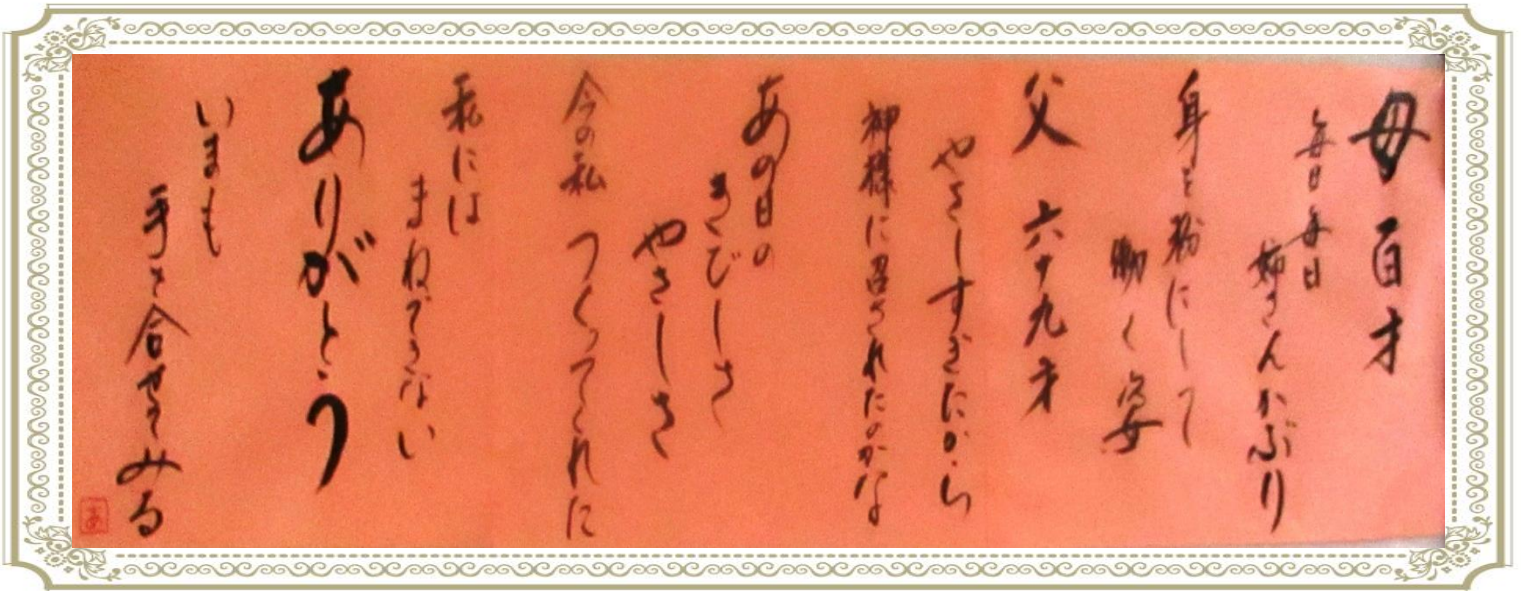 母 百才
毎日毎日
姉さんかぶり
身を粉にして
働く姿
父 六十九才
やさしすぎたから
神様に召されたのかな
あの日の
きびしさ
やさしさ
今の私 つくってくれた
私には
まねできない
ありがとう
いまも
手を合せてみる